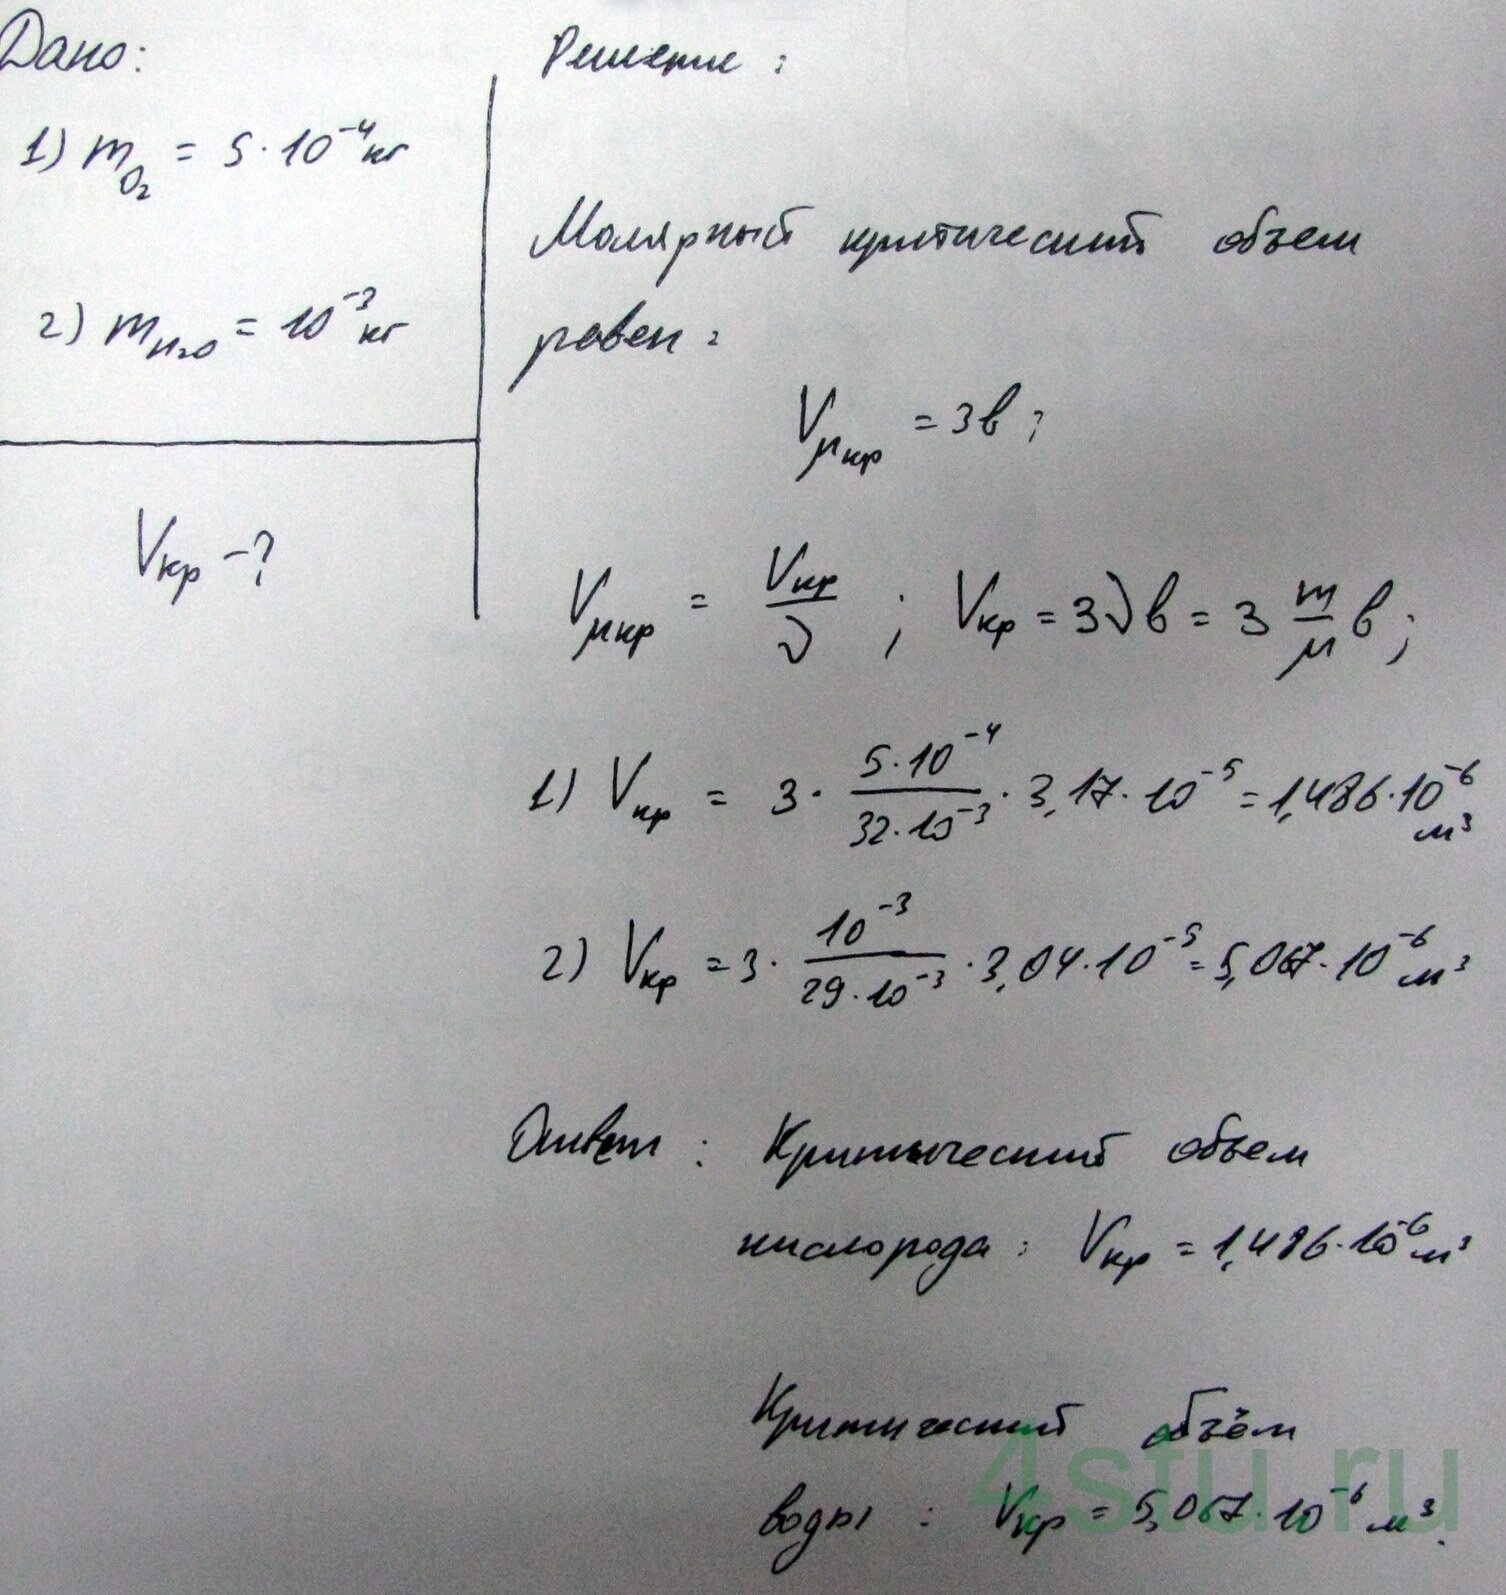 Дано:
1) m O₂ = 5·10⁻⁴ кг
2) m H₂O = 10⁻³ кг
Vкр -?
Решение:
Молярный критический объем
равен:
Vμкр = 3b;
Vμкр = Vкр/ν ; Vкр = 3νb = 3 m/μ b;
1) Vкр = 3 · 5·10⁻⁴/32·10⁻³ · 3,17·10⁻⁵ = 1,486·10⁻⁶ м³
2) Vкр = 3 · 10⁻³/29·10⁻³ · 3,04·10⁻⁵ = 5,067·10⁻⁶ м³
Ответ: Критический объем
кислорода: Vкр = 1,486·10⁻⁶ м³
Критический объём
воды: Vкр = 5,067·10⁻⁶ м³.
4stu.ru